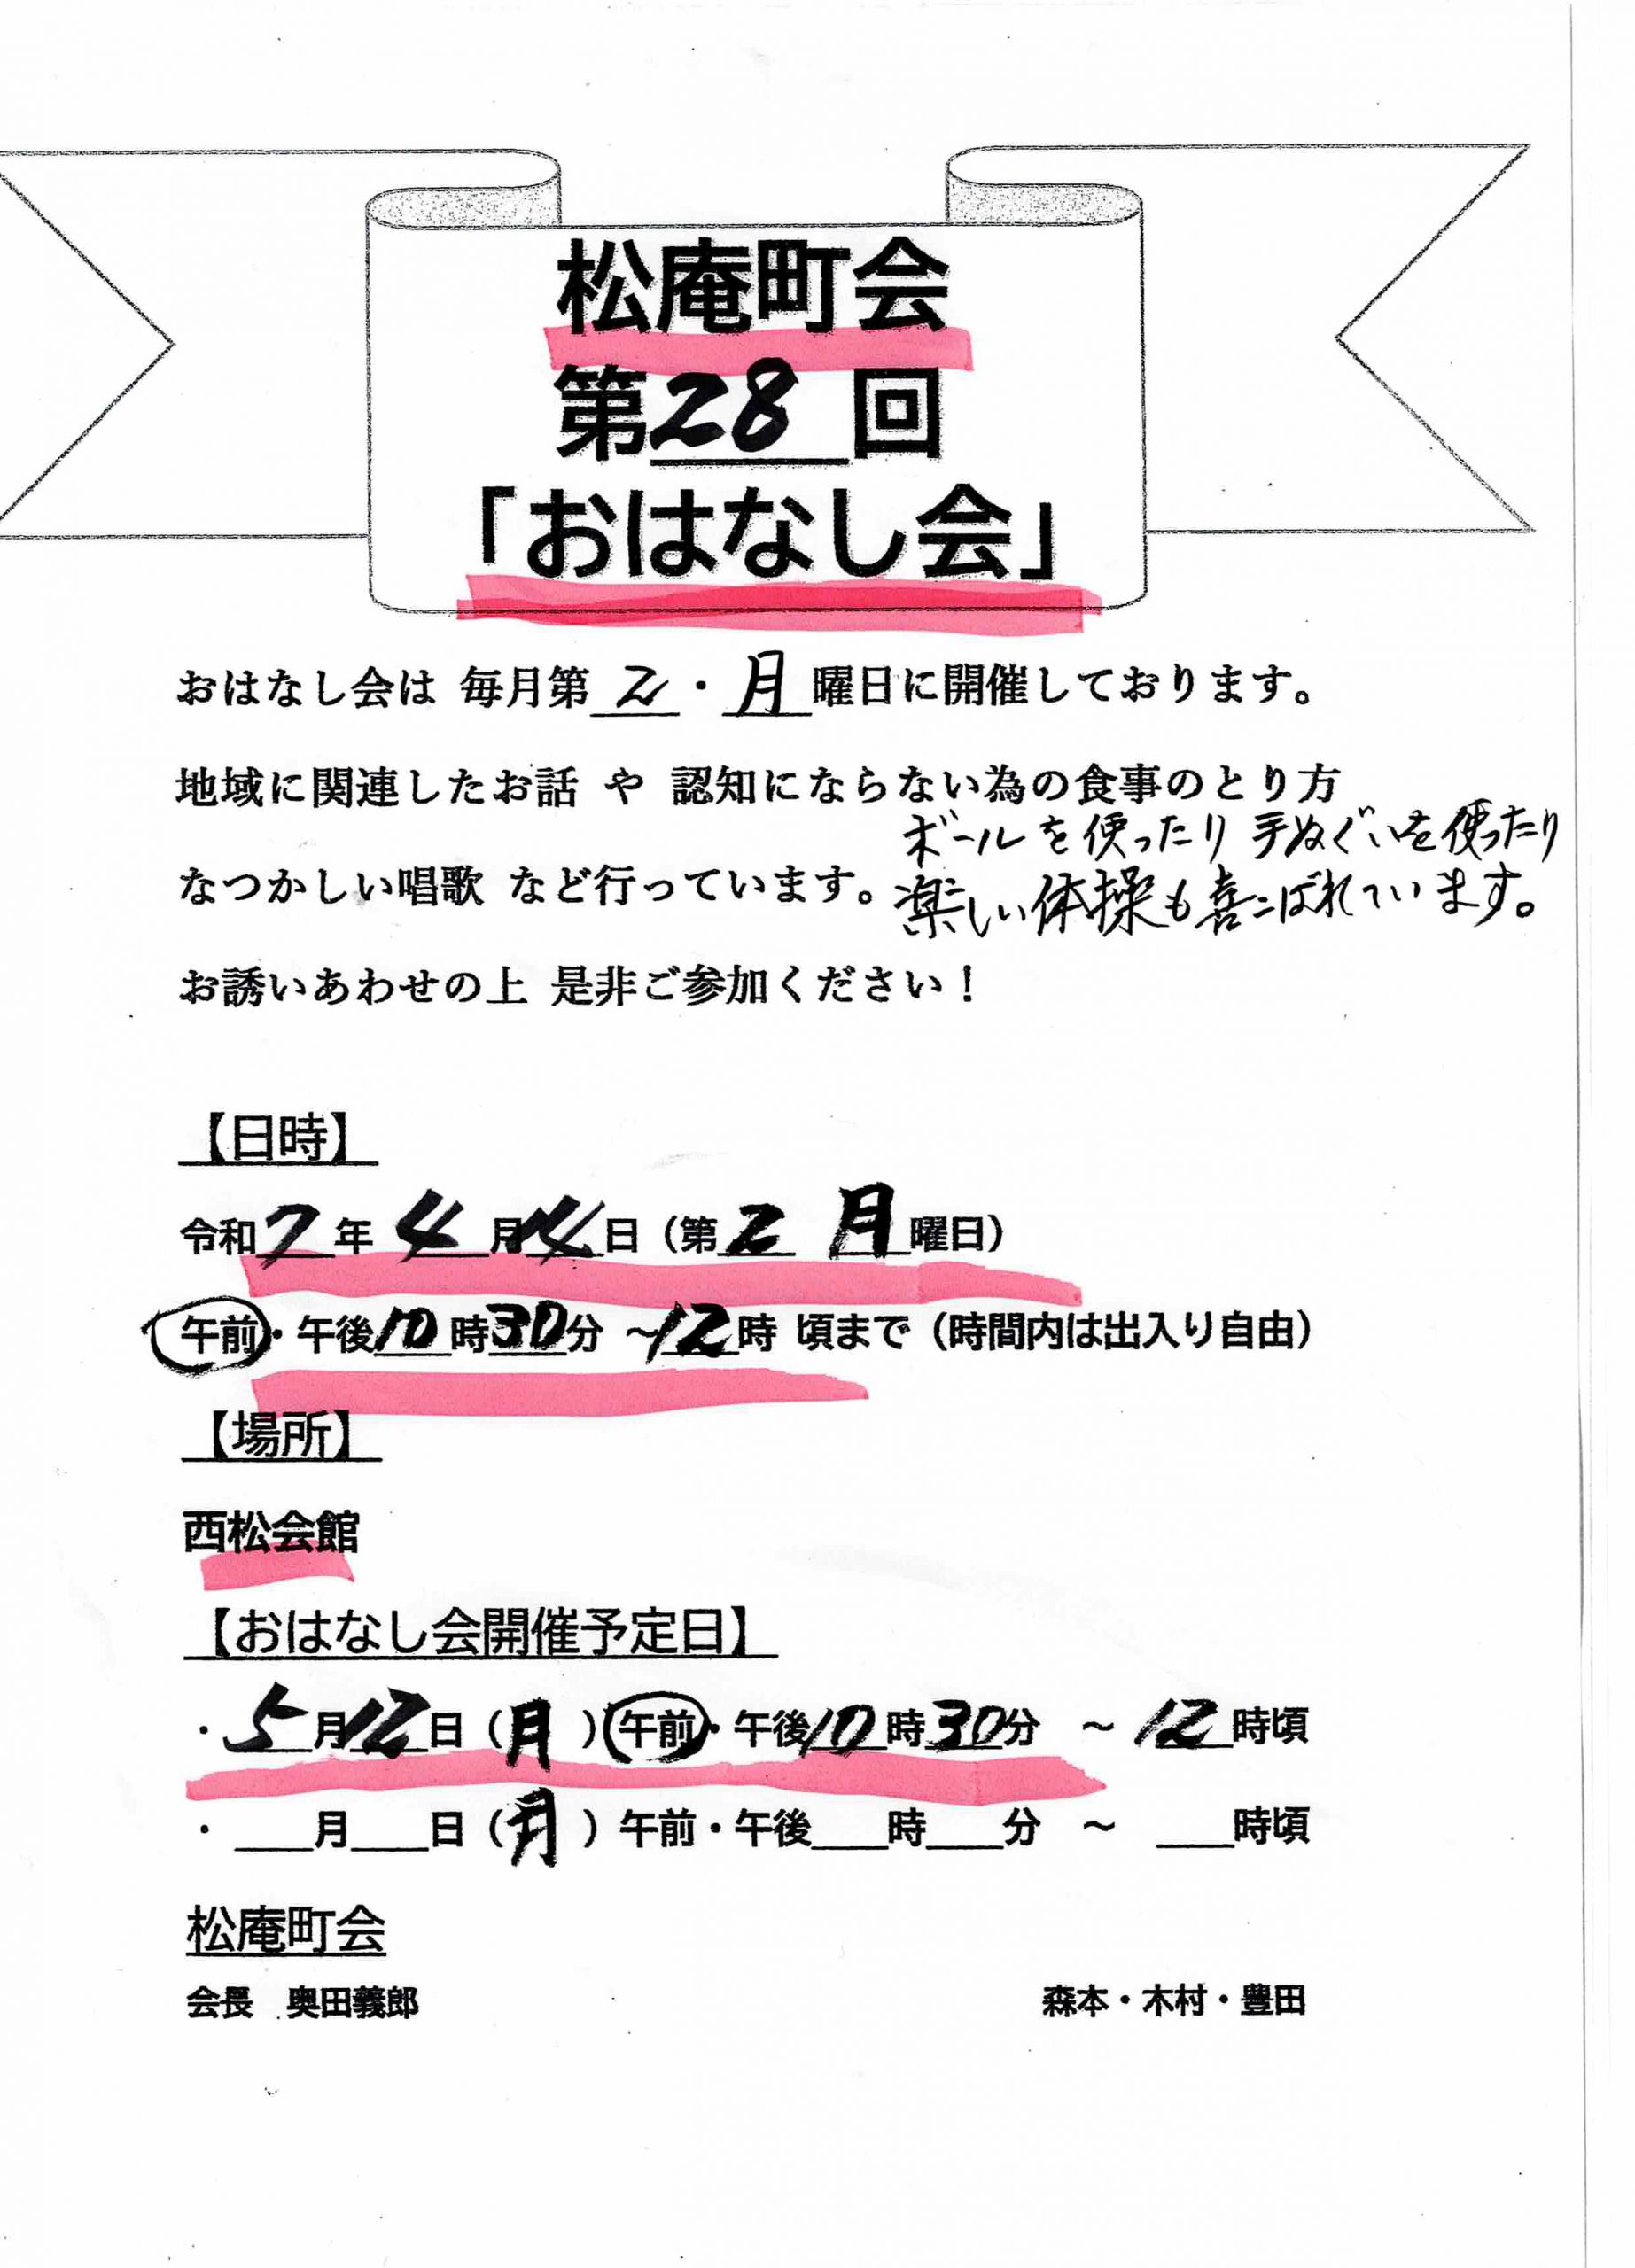 松庵町会
第28回
「おはなし会」
おはなし会は 毎月第2・月曜日に開催しております。
地域に関連したお話 や 認知にならない為の食事のとり方
ボールを使ったり 手ぬぐいを使ったり
なつかしい唱歌 など行っています。楽しい体操も喜こばれています。
お誘いあわせの上 是非ご参加ください！
【日時】
令和7年4月14日（第2 月曜日）
午前・午後10時30分 ～12時 頃まで（時間内は出入り自由）
【場所】
西松会館
【おはなし会開催予定日】
・5月12日（月）午前・午後10時30分 ～ 12時頃
・___月___日（月）午前・午後___時___分 ～ ___時頃
松庵町会
会長 奥田義郎 森本・木村・豊田